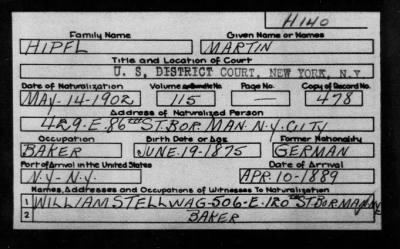 H140
Family Name Given Name or Names
HIPFL MARTIN
Title and Location of Court
U. S. DISTRICT COURT, NEW YORK, N.Y.
Date of Naturalization Volume or Bundle No. Page No. Copy of Record No.
MAY-14-1902 115 — 478
Address of Naturalized Person
429-E-86TH ST. BOR. MAN. N.Y. CITY
Occupation Birth Date or Age Former Nationality
BAKER JUNE-19-1875 GERMAN
Port of Arrival in the United States Date of Arrival
N.Y.-N.Y. APR.10-1889
Names, Addresses and Occupations of Witnesses To Naturalization
1 WILLIAM STELLWAG-506-E-120TH ST. BOR. MAN. N.Y.
2 BAKER